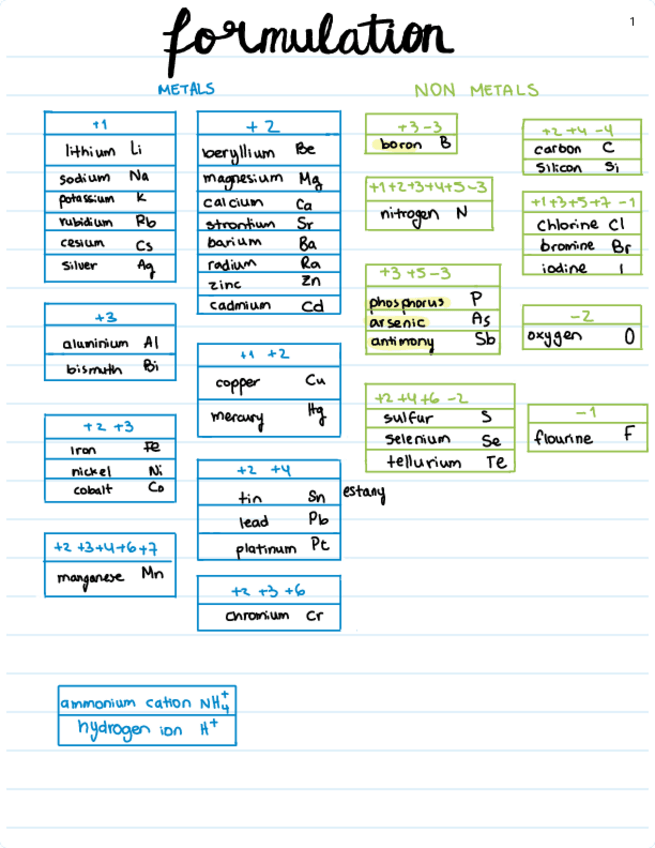 formulation
1
METALS
+1
lithium Li
sodium Na
potassium K
rubidium Rb
cesium Cs
silver Ag
+3
aluminium Al
bismuth Bi
+2 +3
Iron Fe
nickel Ni
cobalt Co
+2 +3+4+6+7
manganese Mn
+2
beryllium Be
magnesium Mg
calcium Ca
strontium Sr
barium Ba
radium Ra
zinc Zn
cadmium Cd
+1 +2
copper Cu
mercury Hg
+2 +4
tin Sn estany
lead Pb
platinum Pt
+2 +3 +6
chromium Cr
NON METALS
+3-3
boron B
+1+2+3+4+5-3
nitrogen N
+3 +5-3
phosphorus P
arsenic As
antimony Sb
+2 +4+6 -2
sulfur S
selenium Se
tellurium Te
+2 +4 -4
carbon C
silicon Si
+1+3+5+7 -1
chlorine Cl
bromine Br
iodine I
-2
oxygen O
-1
flourine F
ammonium cation NH₄⁺
hydrogen ion H⁺